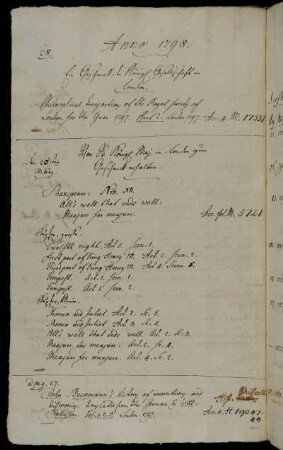 28.
Anno 1798.
Ein Geschenk der Königl. Gesellschaft in
London.
Philosophical Transactions of the Royal Society of
London for the Year 1797. Part 2. London 1797. Acc. 4. M.
Von Sr. Königl. Maj. in London zum
Geschenk erhalten.
Shakspeare: No.
All's well that ends well.
Measure for measure.
Kupfer, große
Twelfth night. Act 2. Scen. 1.
First part of King Henry IV. Act 2. Scen. 2.
Third part of King Henry VI. Act 4. Scen. 5.
Tempest. Act. 1. Scen. 1.
Tempest. Act 1. Scen. 2.
Kupfer, kleine
Romeo and Juliet Act 2. Sc. 5.
Romeo and Juliet Act 3. Sc. 5.
All's well that ends well Act 2. Sc. 3.
Measure for measure. Act. 2. Sc. 4.
Measure for measure. Act. 4. Sc. 2.
pag. 27.
John Beckmann's history of inventions and
discoveries. Translated from the German by Will.
Johnston. Vol. 1. 2. 3. London 1797.